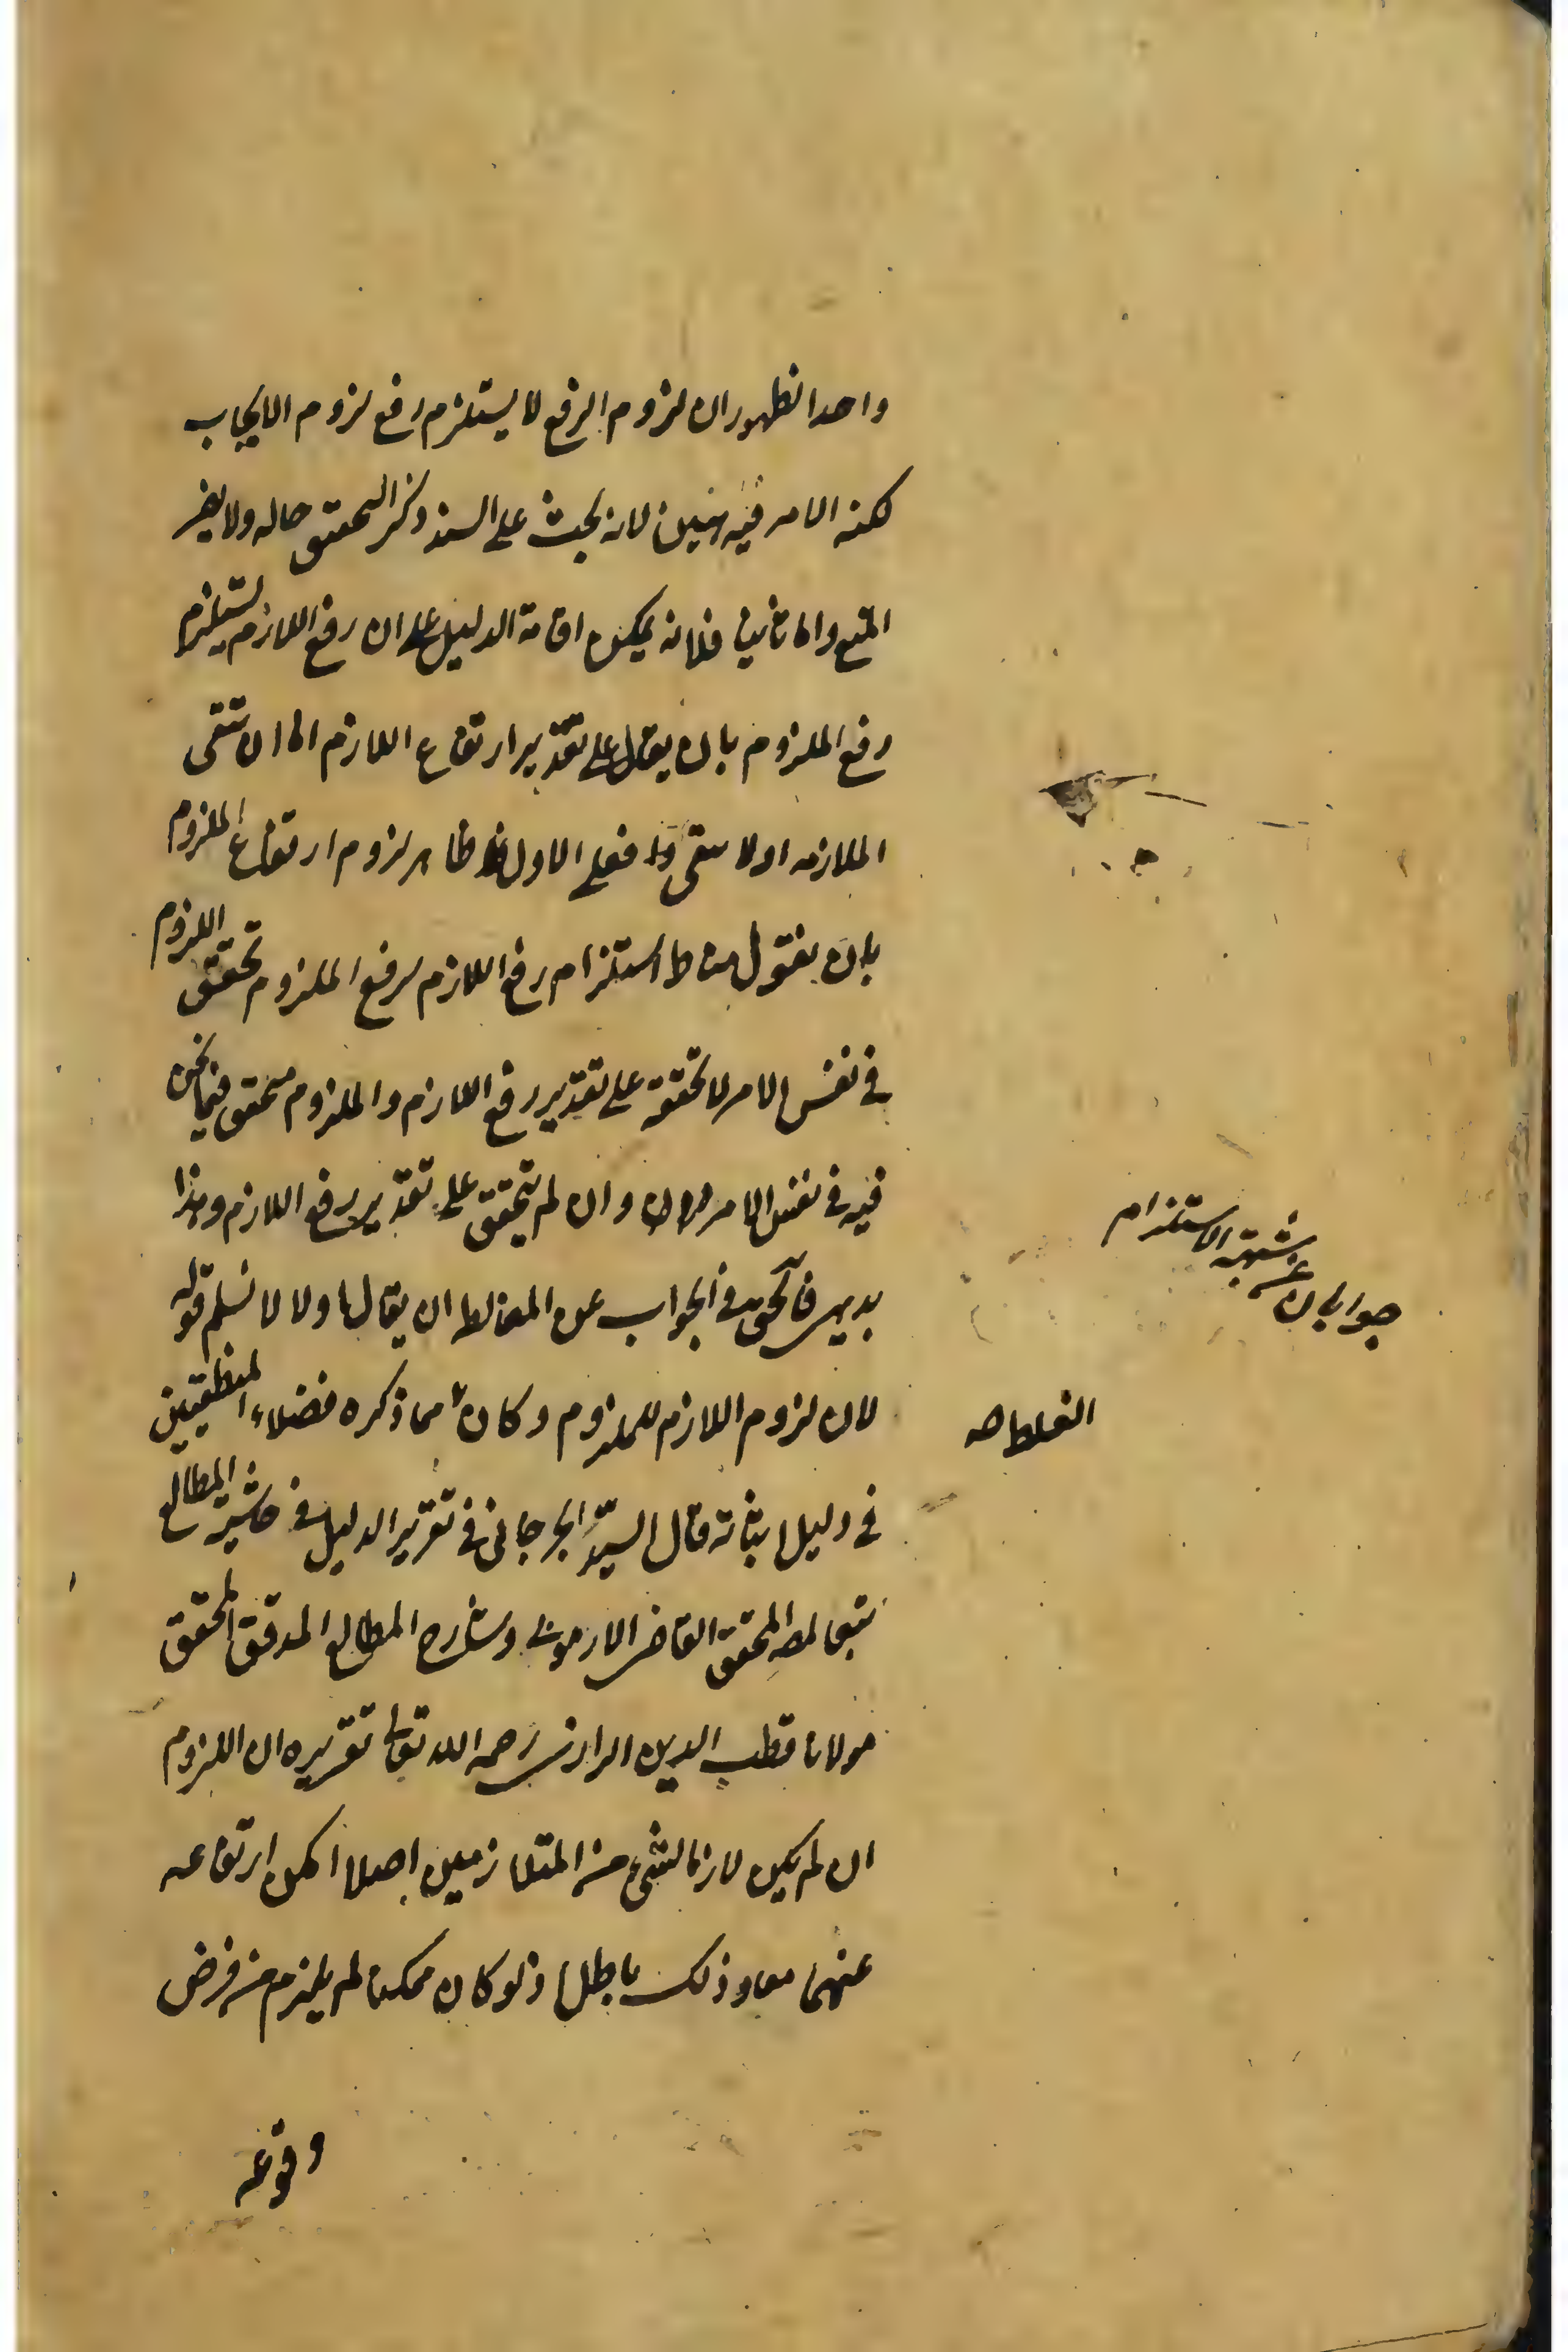 واحدا لظهور ان لزوم الرفع لا يستلزم رفع لزوم الايجاب
لكنه الامر فيه هين لانه بحث على السند ذكر التحقق حاله ولا يضر
المنع واما ثانيا فلانه يمكن اقامة الدليل على ان رفع اللازم يستلزم
رفع الملزوم بان يقال على تقدير ارتفاع اللازم اما ان تبقى
الملازمه اولا تبقى فعلى الاول ظاهر لزوم ارتفاع الملزوم
بان نقول مناط استلزام رفع اللازم لرفع الملزوم تحقق اللزوم
فى نفس الامر لا تحققه على تقدير رفع اللازم والملزوم متحقق فيما نحن
فيه فى نفس الامر وان لم يتحقق على تقدير رفع اللازم وهذا
بديهى فالحق فى الجواب عن المغالطه ان يقال اولا لا نسلم قوله
لان لزوم اللازم للملزوم وكان مما ذكره فضلاء المنطقيين
فى دليل اثباته قال السيد الجرجانى فى تقرير الدليل فى حاشية المطالع
تبعا لمصه المحقق القاضى الارموى وشارح المطالع المدقق المحقق
مولانا قطب الدين الرازى رحمه الله تعالى تقريره ان اللزوم
ان لم يكن لازما لشىء من المتلازمين اصلا امكن ارتفاعه
عنهما معا وذلك باطل اذ لو كان ممكنا لم يلزم من فرض
وقوعه
جوابان عن شبهة الاستلزام
الغلط صه